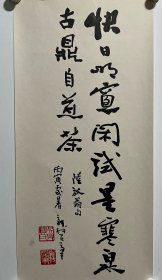 快日明窗閑試墨寒泉
古鼎自煎茶
陸放翁句
丙寅